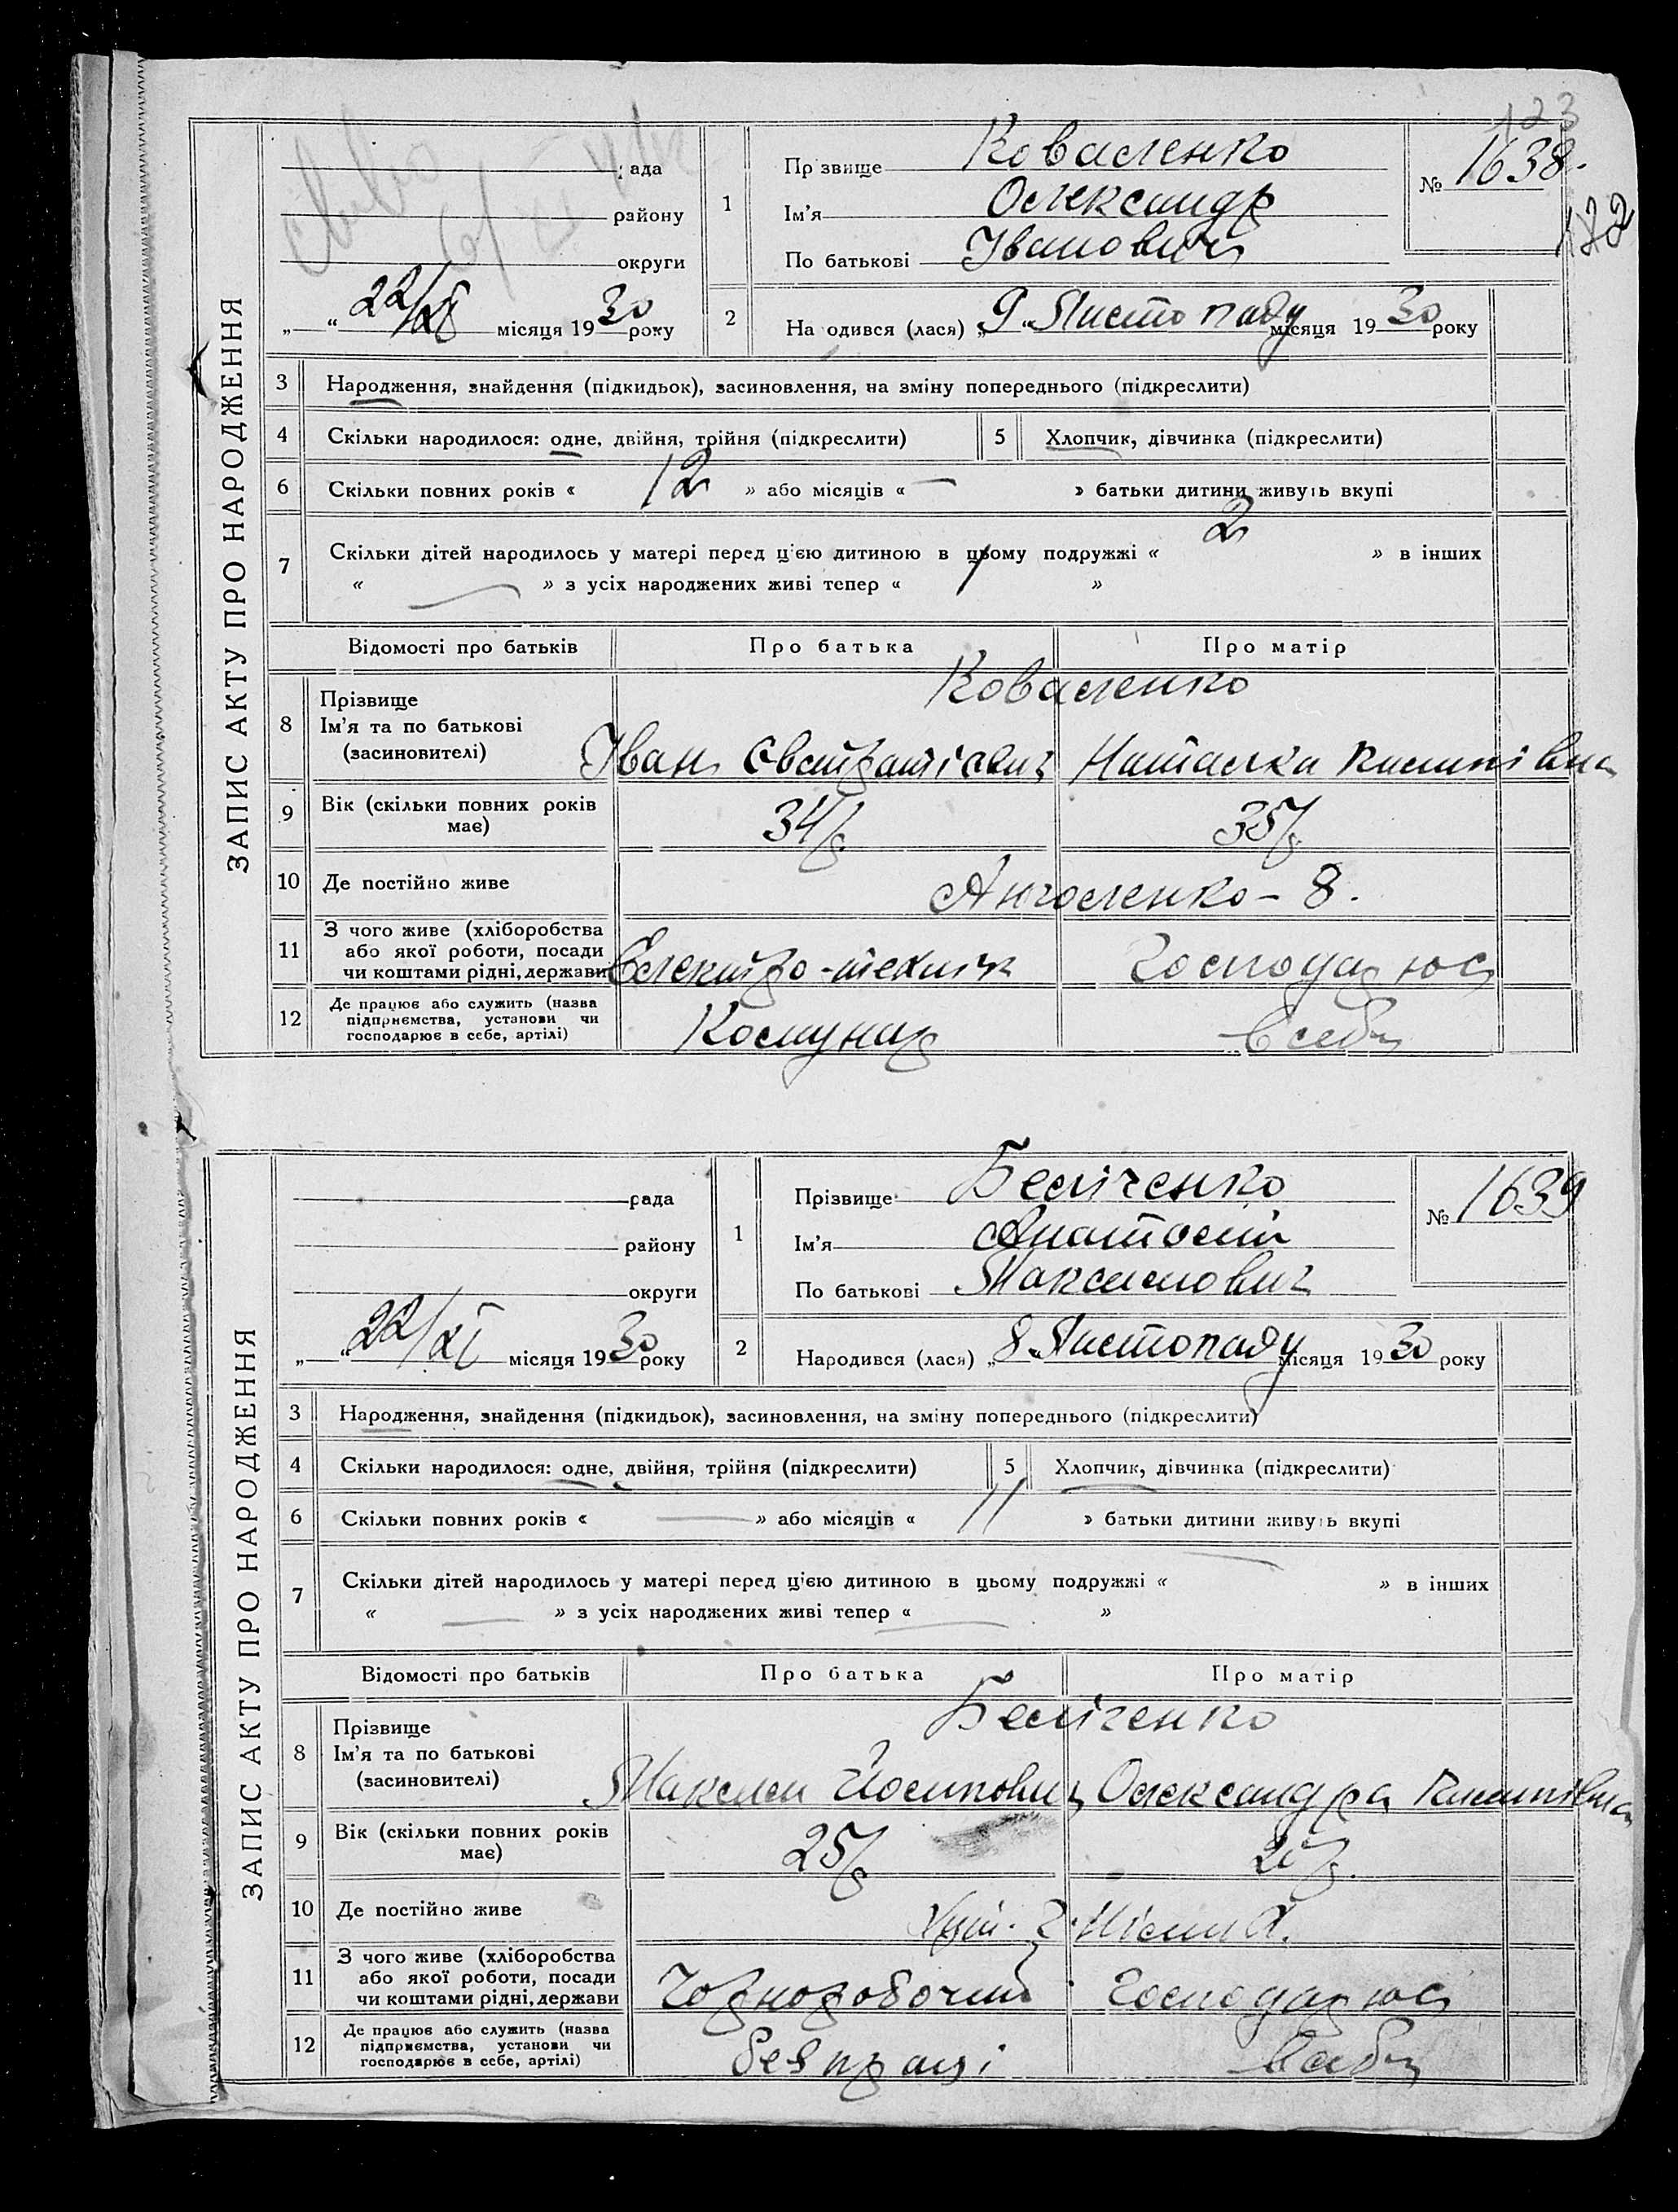 123
ЗАПИС АКТУ ПРО НАРОДЖЕННЯ
рада
району
округи
22/XI місяця 1930 року
1
Прзвище Коваленко
Ім'я Олександр
По батькові Іванович
№ 1638.
172
2
На одився (лася) „9„ Листопаду місяця 1930 року
3 Народження, знайдення (підкидьок), засиновлення, на зміну попереднього (підкреслити)
4 Скільки народилося: одне, двійня, трійня (підкреслити) 5 Хлопчик, дівчинка (підкреслити)
6 Скільки повних років « 12 » або місяців « — » батьки дитини живуть вкупі
7 Скільки дітей народилось у матері перед цією дитиною в цьому подружжі « 2 » в інших
« — » з усіх народжених живі тепер « 1 »
Відомості про батьків Про батька Про матір
8 Прізвище Ім'я та по батькові (засиновителі)
Коваленко
Іван Євстратієвич Наталка Пилипівна
9 Вік (скільки повних років має) 34/р. 35/р.
10 Де постійно живе Антоленко - 8.
11 З чого живе (хліборобства або якої роботи, посади чи коштами рідні, держави Електро-технік Господарює
12 Де працює або служить (назва підприємства, установи чи господарює в себе, артілі) Комунар в себе
ЗАПИС АКТУ ПРО НАРОДЖЕННЯ
рада
району
округи
22/XI місяця 1930 року
1
Прізвище Беліченко
Ім'я Анатолій
По батькові Максимович
№ 1639
2
Народився (лася) „8„ Листопаду місяця 1930 року
3 Народження, знайдення (підкидьок), засиновлення, на зміну попереднього (підкреслити)
4 Скільки народилося: одне, двійня, трійня (підкреслити) 5 Хлопчик, дівчинка (підкреслити)
6 Скільки повних років « — » або місяців « 11 » батьки дитини живуть вкупі
7 Скільки дітей народилось у матері перед цією дитиною в цьому подружжі « — » в інших
« — » з усіх народжених живі тепер « — »
Відомості про батьків Про батька Про матір
8 Прізвище Ім'я та по батькові (засиновителі)
Беліченко
Максим Йосипович Олександра Пилипівна
9 Вік (скільки повних років має) 25/р
10 Де постійно живе
11 З чого живе (хліборобства або якої роботи, посади чи коштами рідні, держави Чорноробочий Господарює
12 Де працює або служить (назва підприємства, установи чи господарює в себе, артілі) безпраці в себе